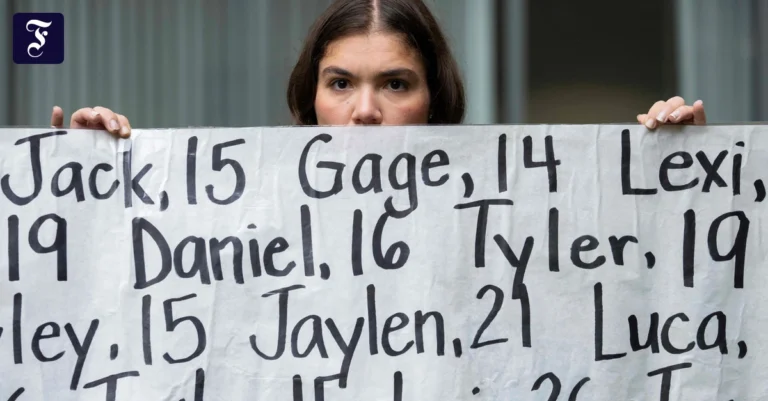 F
Jack, 15 Gage, 14 Lexi,
19 Daniel, 16 Tyler, 19
ley, 15 Jaylen, 21 Luca,